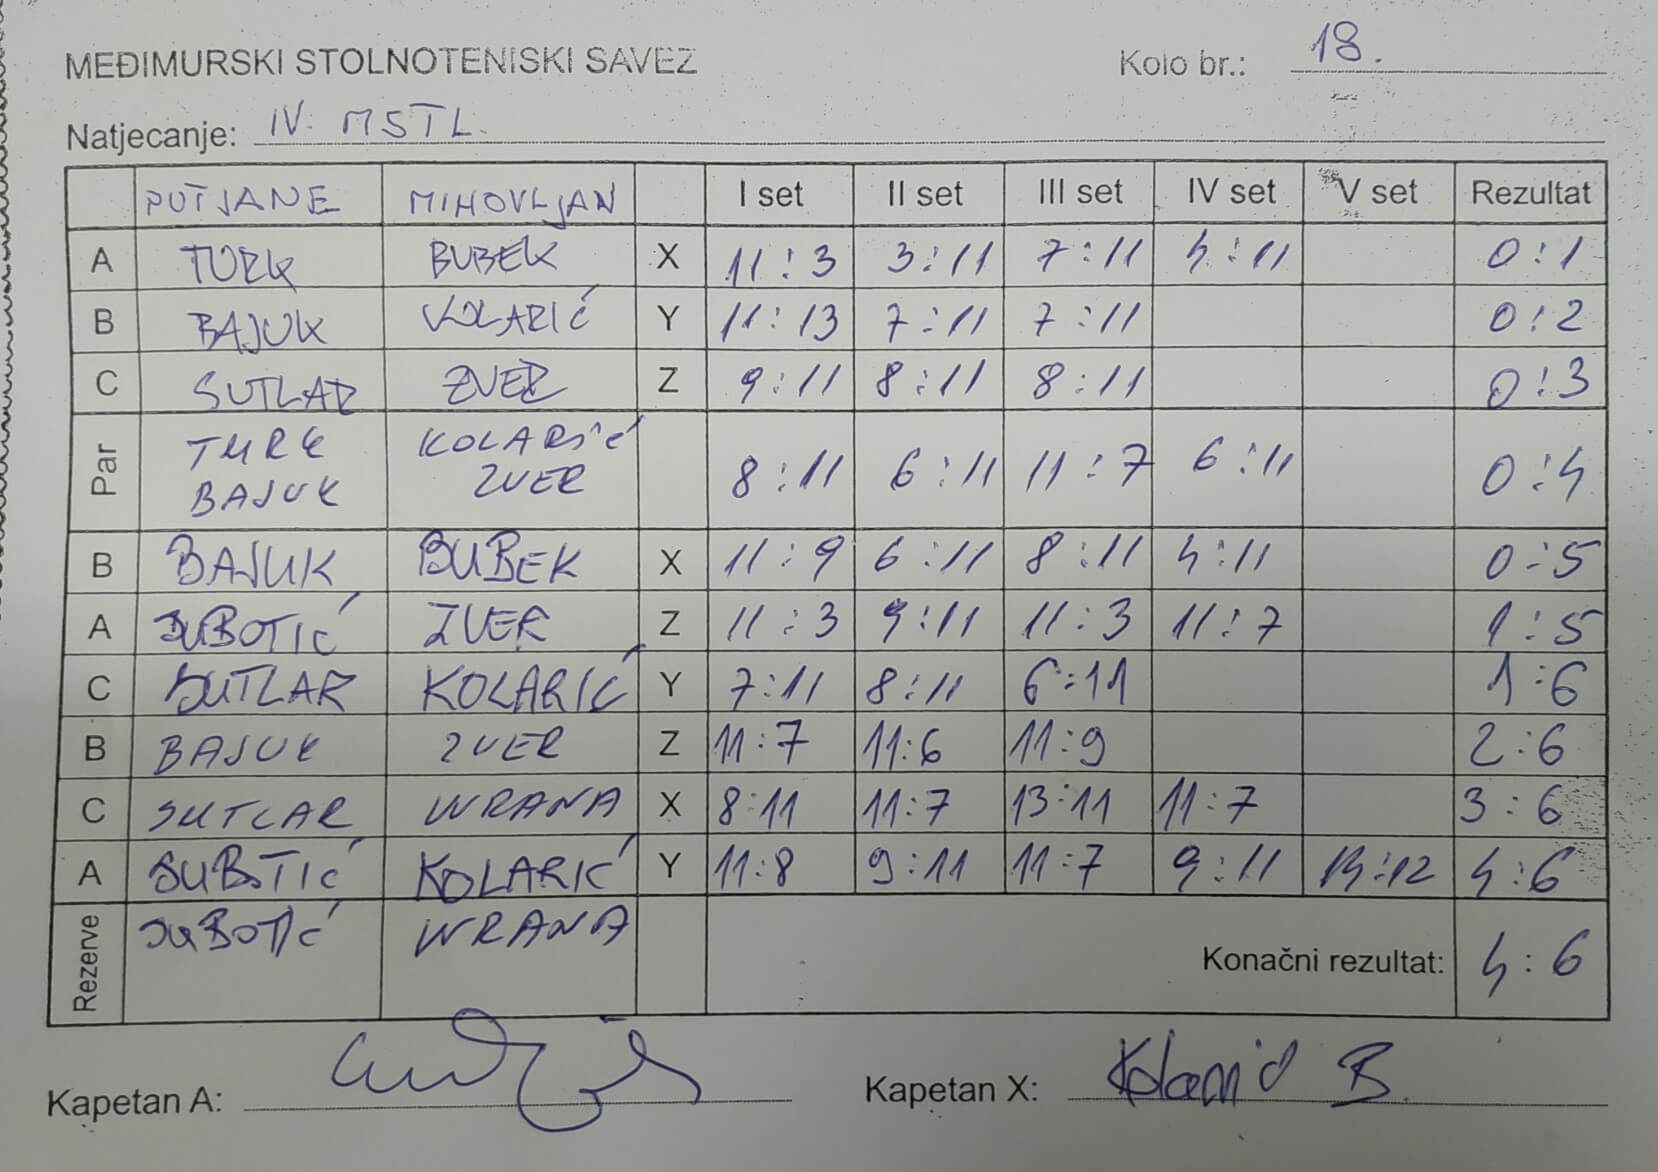 MEĐIMURSKI STOLNOTENISKI SAVEZ Kolo br.: 18.
Natjecanje: IV. MSTL.
PUTJANE MIHOVLJAN I set II set III set IV set V set Rezultat
A TURK BUBEK X 11:3 3:11 7:11 4:11 0:1
B BAJUK KOLARIĆ Y 11:13 7:11 7:11 0:2
C SUTLAR ZVER Z 9:11 8:11 8:11 0:3
Par TURK BAJUK KOLARIĆ ZVER 8:11 6:11 11:7 6:11 0:4
B BAJUK BUBEK X 11:9 6:11 8:11 4:11 0:5
A SUBOTIĆ ZVER Z 11:3 9:11 11:3 11:7 1:5
C SUTLAR KOLARIĆ Y 7:11 8:11 6:11 1:6
B BAJUK ZVER Z 11:7 11:6 11:9 2:6
C SUTLAR WRANA X 8:11 11:7 13:11 11:7 3:6
A SUBOTIĆ KOLARIĆ Y 11:8 9:11 11:7 9:11 14:12 4:6
Rezerve SUBOTIĆ WRANA Konačni rezultat: 4:6
Kapetan A: Kapetan X: Kolarić B.